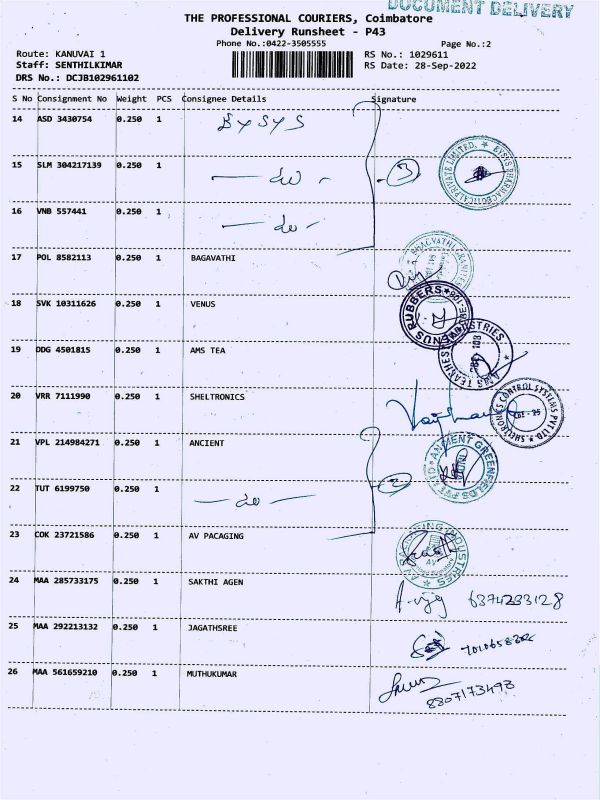 DOCUMENT DELIVERY
THE PROFESSIONAL COURIERS, Coimbatore
Delivery Runsheet - P43
Phone No.:0422-3505555 Page No.:2
Route: KANUVAI 1 RS No.: 1029611
Staff: SENTHILKIMAR RS Date: 28-Sep-2022
DRS No.: DCJB102961102
S No Consignment No Weight PCS Consignee Details Signature
14 ASD 3430754 0.250 1
15 SLM 304217139 0.250 1 do 3
16 VNB 557441 0.250 1 do
17 POL 8582113 0.250 1 BAGAVATHI
18 SVK 10311626 0.250 1 VENUS
VENUS RUBBERS
19 DDG 4501815 0.250 1 AMS TEA
20 VRR 7111990 0.250 1 SHELTRONICS
21 VPL 214984271 0.250 1 ANCIENT
ANCIENT GREENFIELDS PVT LTD
22 TUT 6199750 0.250 1 do 2
23 COK 23721586 0.250 1 AV PACAGING
24 MAA 285733175 0.250 1 SAKTHI AGEN
6374233128
25 MAA 292213132 0.250 1 JAGATHSREE
26 MAA 561659210 0.250 1 MUTHUKUMAR
8807173498